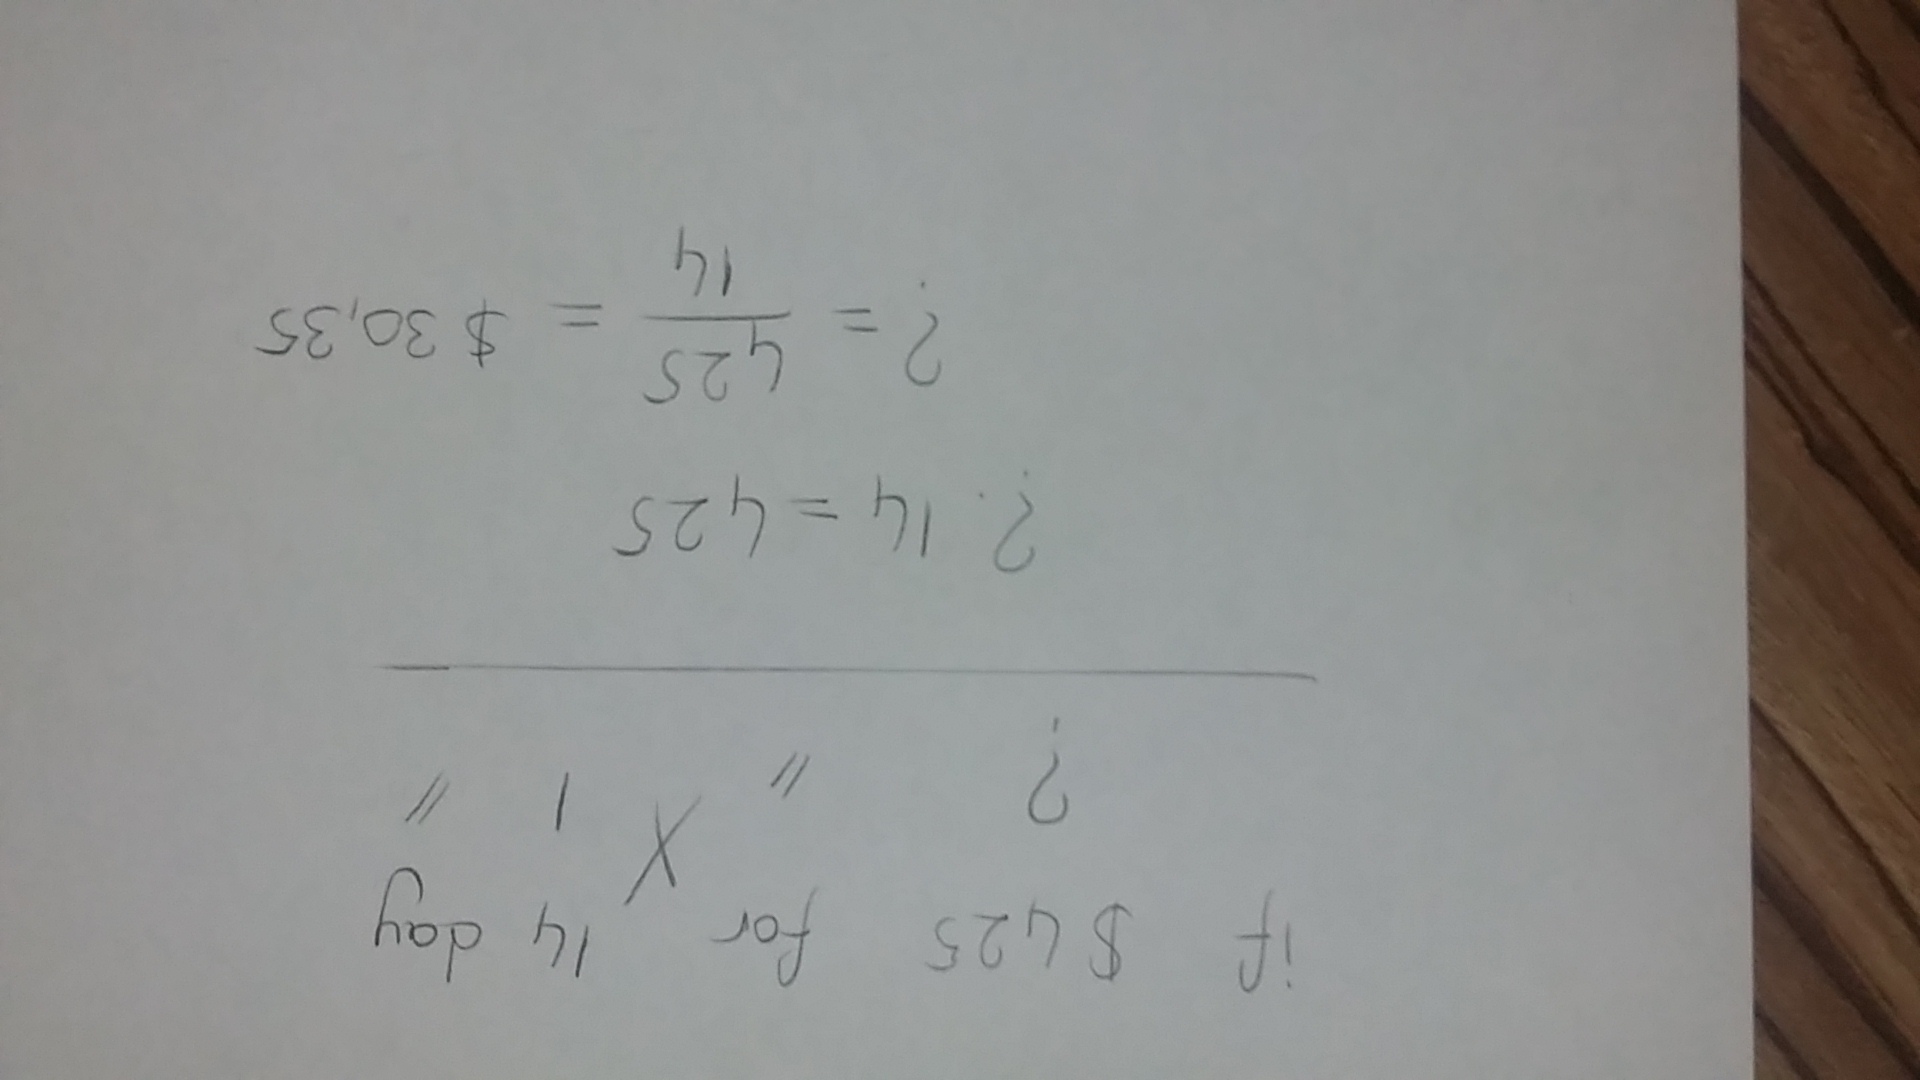 if $425 for 14 day
? " X 1 "
?. 14 = 425
? = 425/14 = $30,35